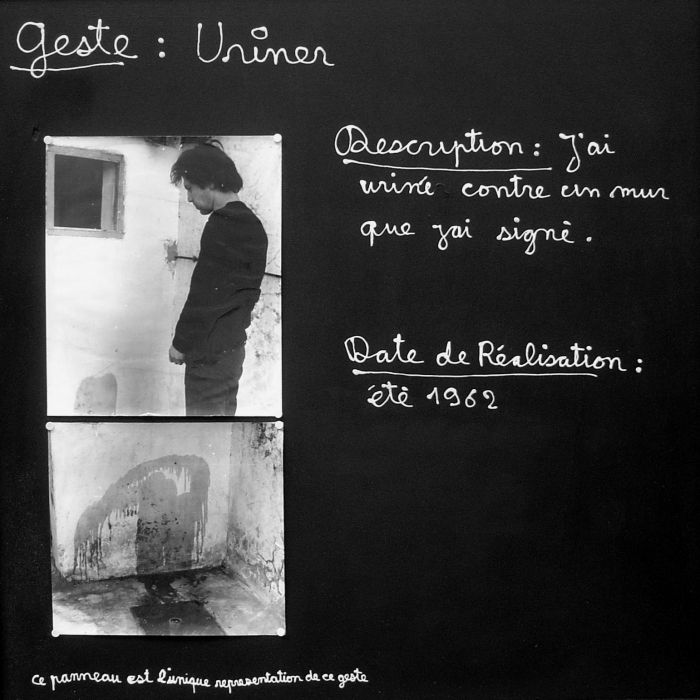 Geste : Uriner
Description : J'ai
uriné contre un mur
que j'ai signé.
Date de Réalisation :
été 1962
ce panneau est l'unique representation de ce geste